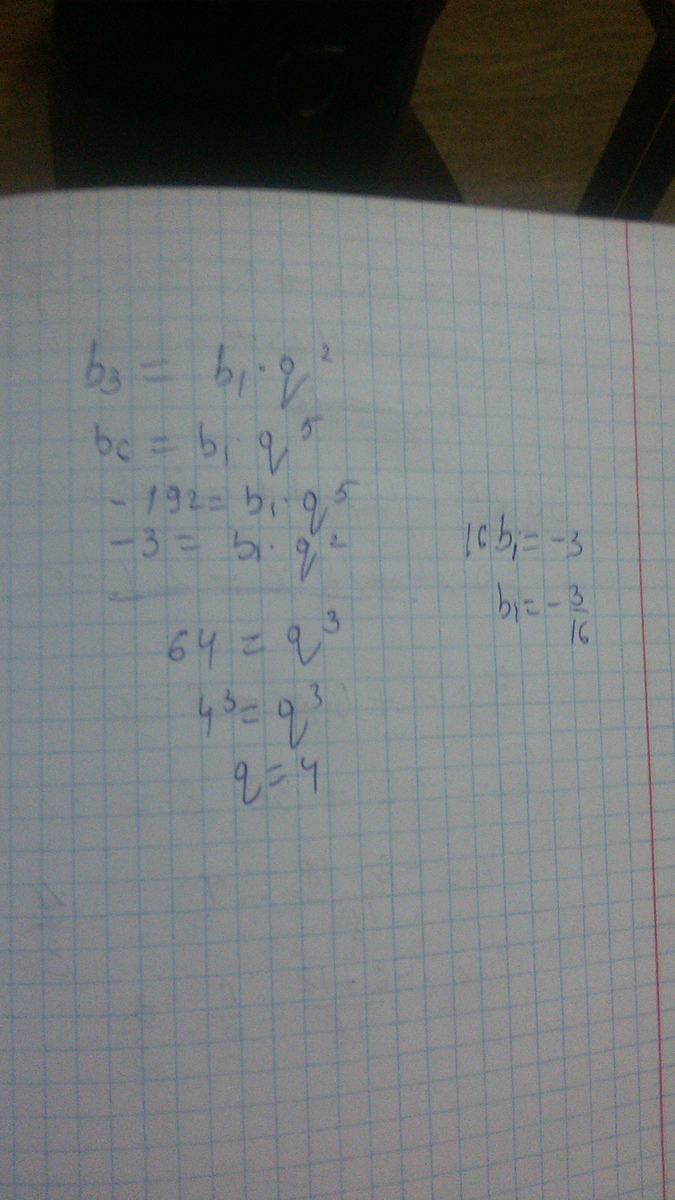 b₃ = b₁ · q²
b₆ = b₁ · q⁵
-192 = b₁ · q⁵
-3 = b₁ · q²
64 = q³
4³ = q³
q = 4
16b₁ = -3
b₁ = -3/16